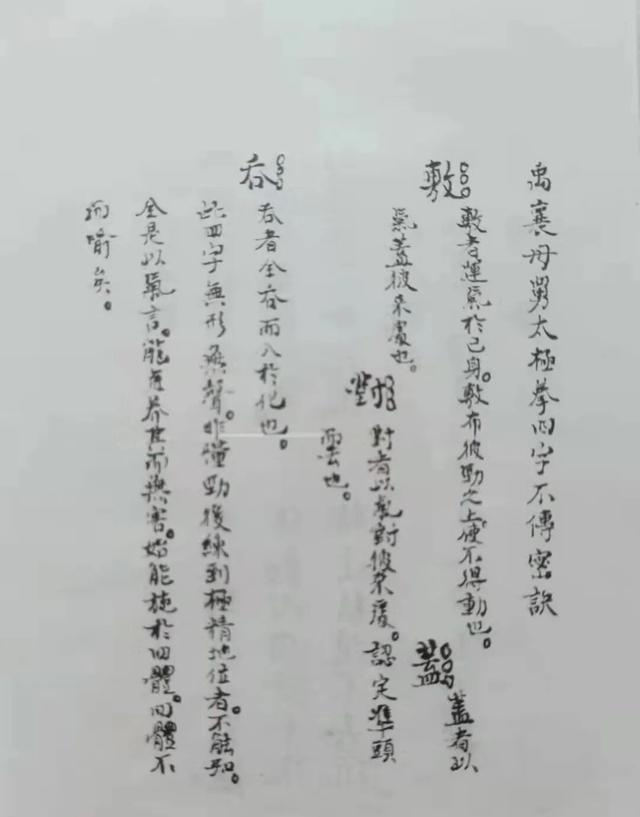 禹襄母舅太極拳四字不傳密訣
敷 敷者運氣於己身。敷布彼勁之上。使不得動也。 蓋 蓋者以
氣蓋彼來處也。 對 對者以氣對彼來處。認定準頭
而去也。
吞 吞者全吞而入於化也。
此四字無形無聲。非懂勁後練到極精地位者。不能知。
全是以氣言。能直養其而無害。始能施於四體。四體不
而喻矣。